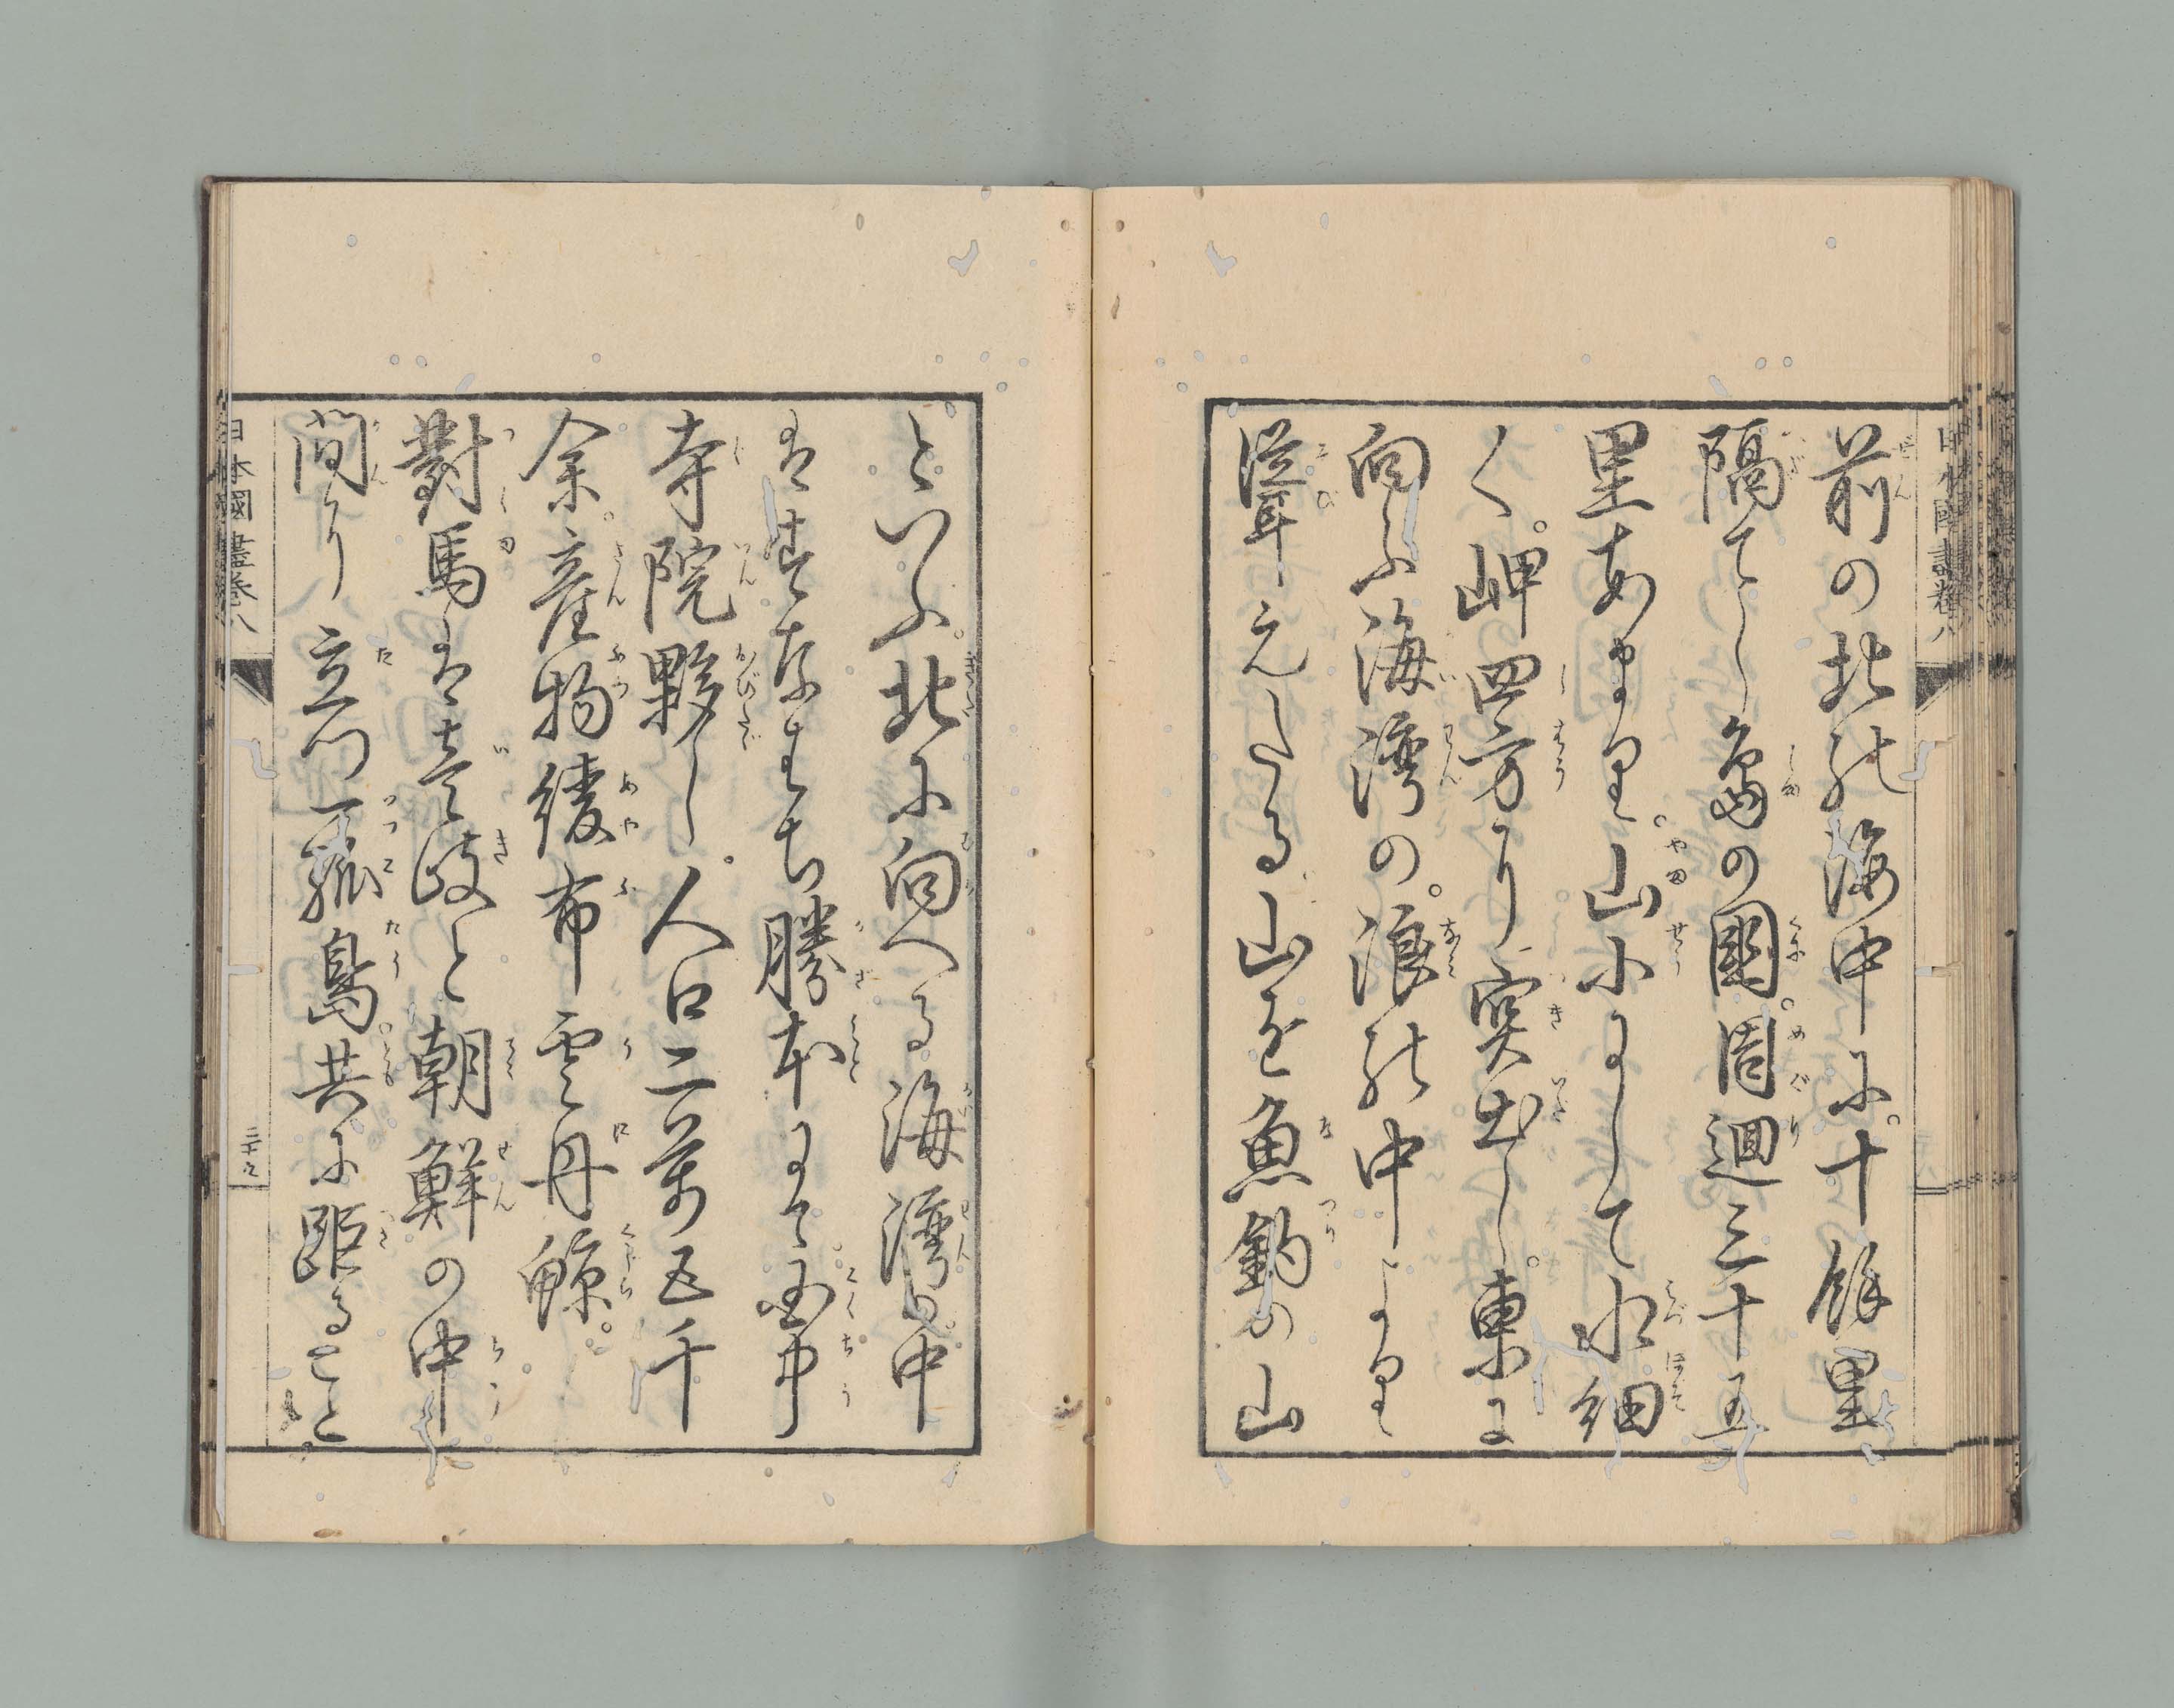 前の北の海中に。十餘里
隔てし島の國。周廻三十五
里あまり。山小にして水細
く。岬四方に突出し。東に
向ふ海湾の。浪の中より
聳えたる山を魚釣の山
といふ。北に向へる海湾の。中
はすなはち勝本にて国中
寺院夥し。人口二萬五千
余。産物綾布雲丹鯨。
對馬は壹岐と朝鮮の中
間に立つ一孤島。共に距ること
日本國盡巻八